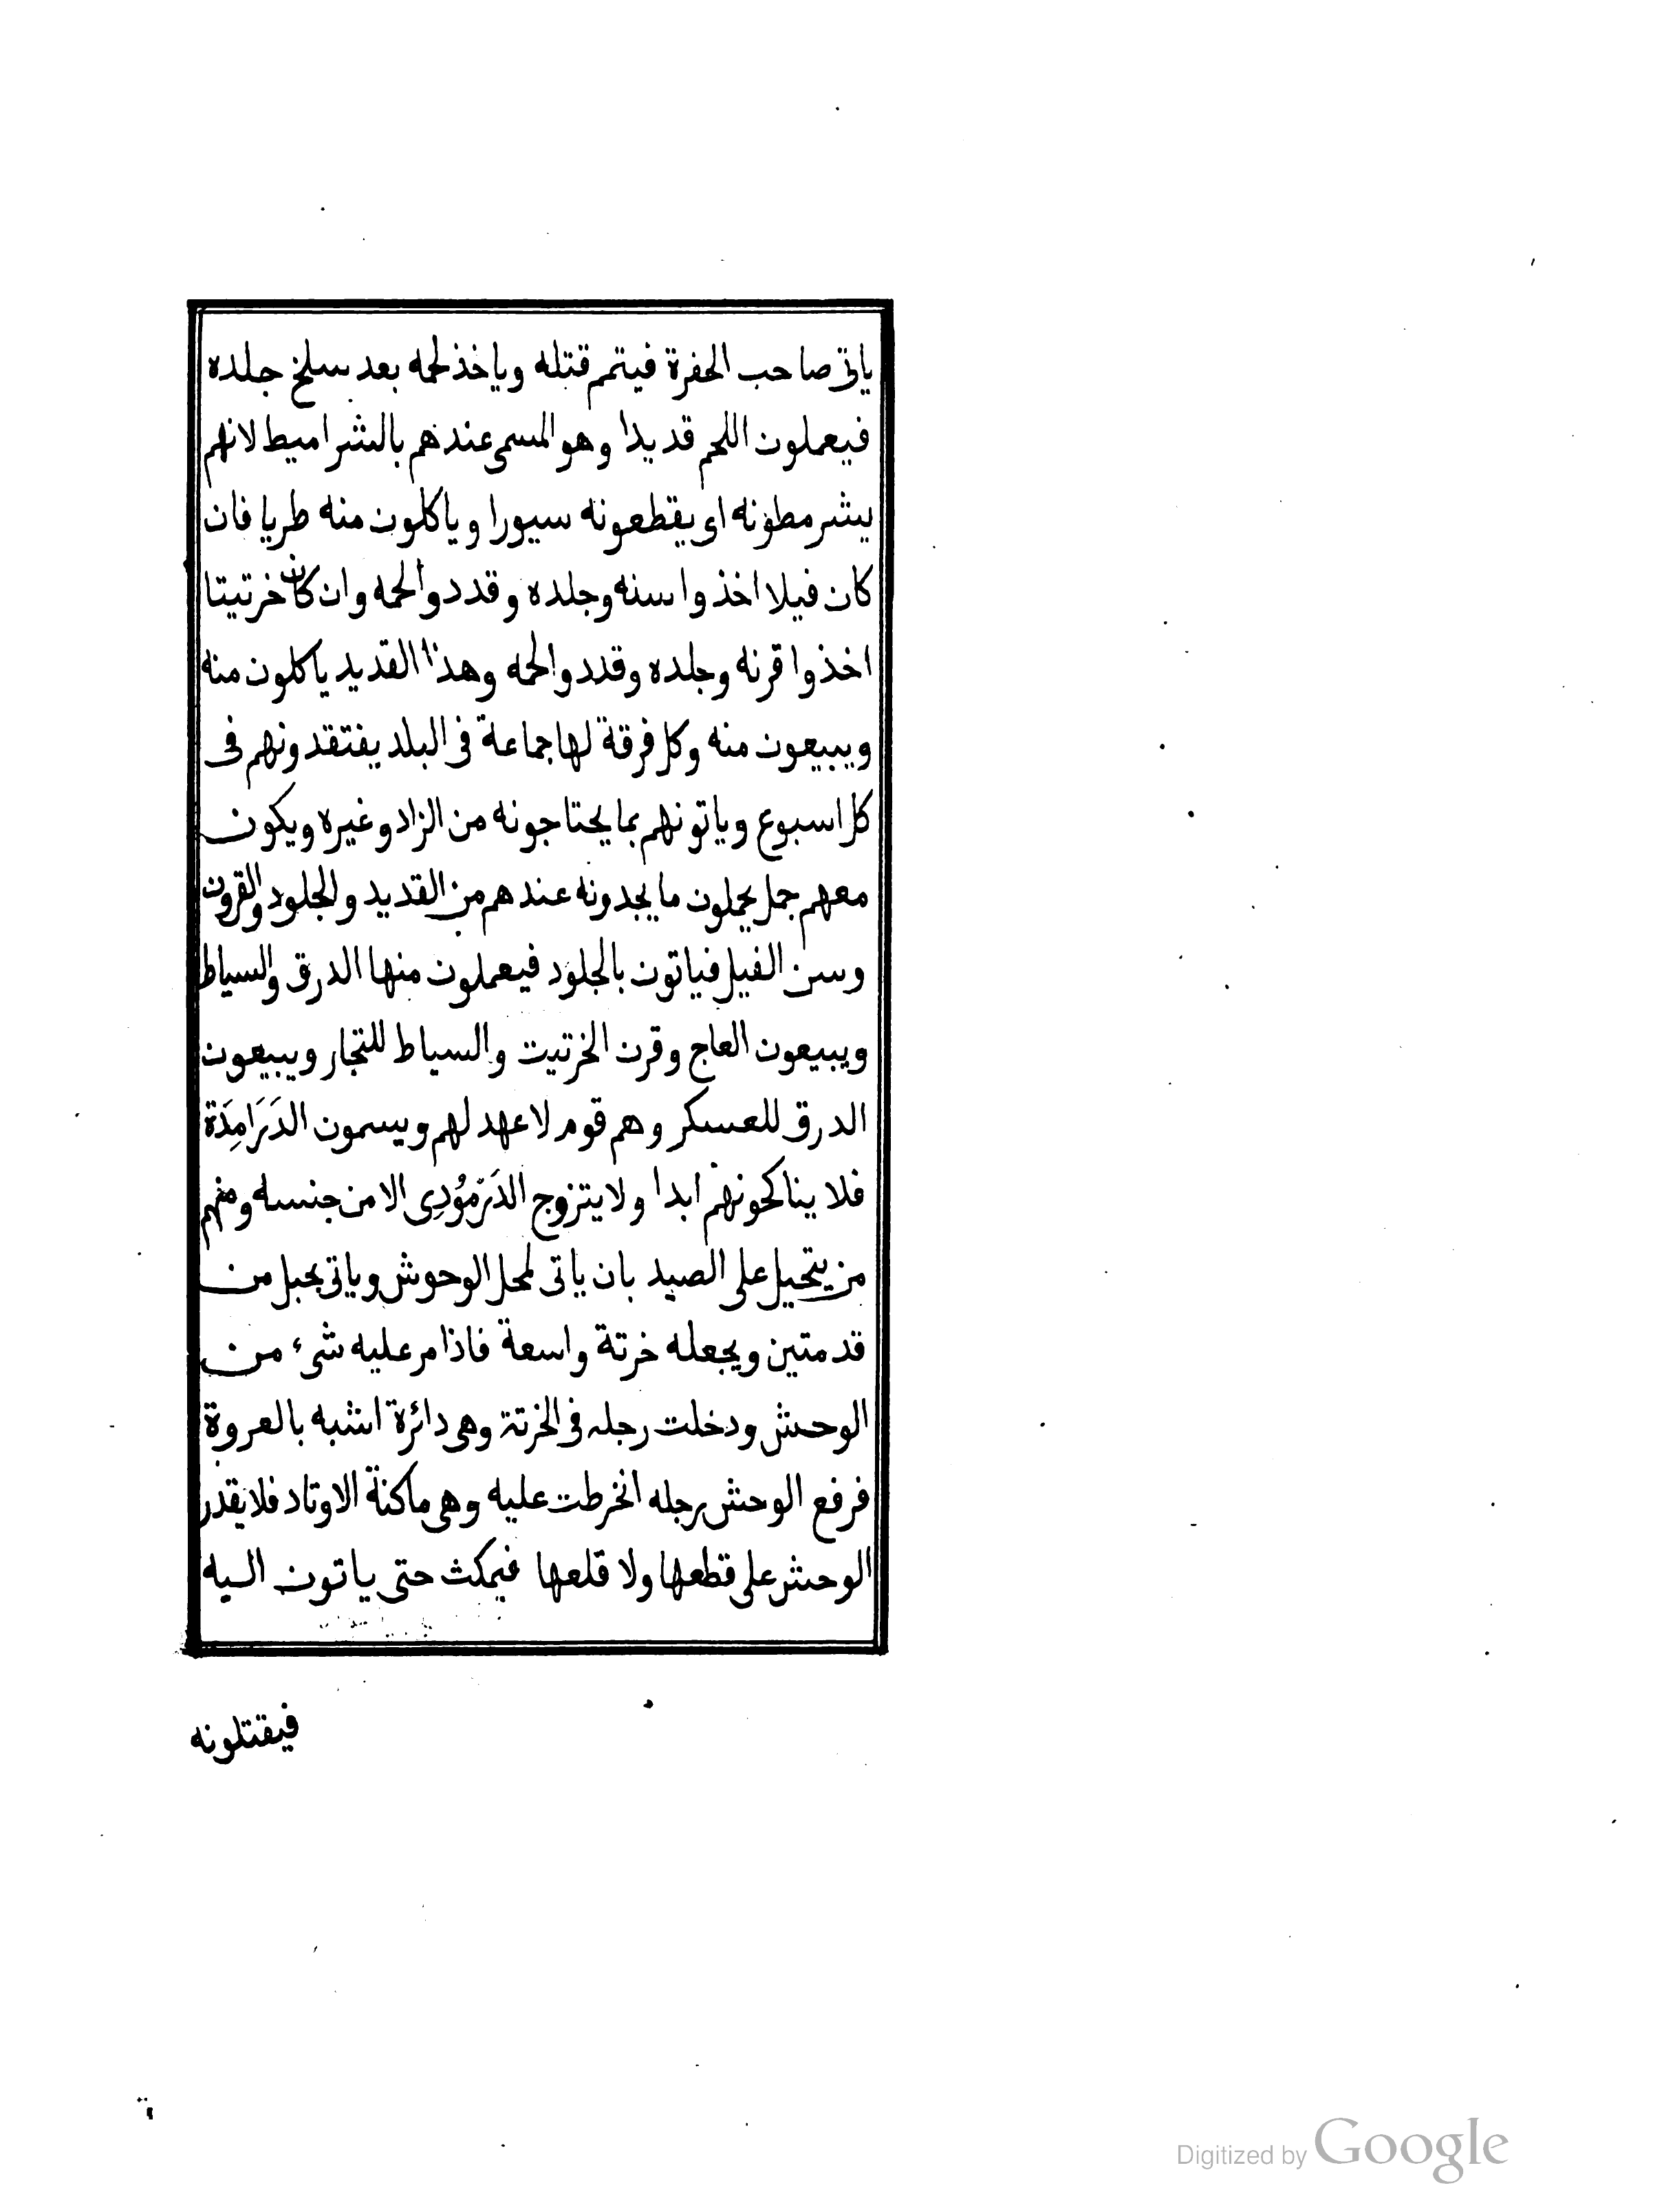 ياتى صاحب الحفرة فيتمم قتله وياخذ لحمه بعد سلخ جلده
فيعملون اللحم قديدا وهو المسمى عندهم بالشراميط لانهم
يشرمطونه اى يقطعونه سيورا وياكلون منه طريا فان
كان فيلا اخذوا سنه وجلده وقددوا لحمه وان كان خرتيتا
اخذوا قرنه وجلده وقددوا لحمه وهذا القديد ياكلون منه
ويبيعون منه وكل فرقة لها جماعة فى البلد يفتقدونهم فى
كل اسبوع وياتونهم بما يحتاجونه من الزاد وغيره ويكون
معهم جمل يحملون ما يجدونه عندهم من القديد والجلود والقرون
وسن الفيل فياتون بالجلود فيعملون منها الدرق والسياط
ويبيعون العاج وقرن الخرتيت والسياط للتجار ويبيعون
الدرق للعسكر وهم قوم لا عهد لهم ويسمون الدَرَامِدَة
فلا يناكحونهم ابدا ولا يتزوج الدَرْمُوْدِى الا من جنسه ومنهم
من يتحيل على الصيد بان ياتى لمحل الوحوش وياتى بحبل من
قد متين ويجعله خرتة واسعة فاذا مر عليه شىء من
الوحش ودخلت رجله فى الخرتة وهى دائرة اشبه بالعروة
فرفع الوحش رجله انخرطت عليه وهى ماكنة الاوتاد فلا يقدر
الوحش على قطعها ولا قلعها فيمكث حتى ياتون اليه
فيقتلونه
Digitized by Google